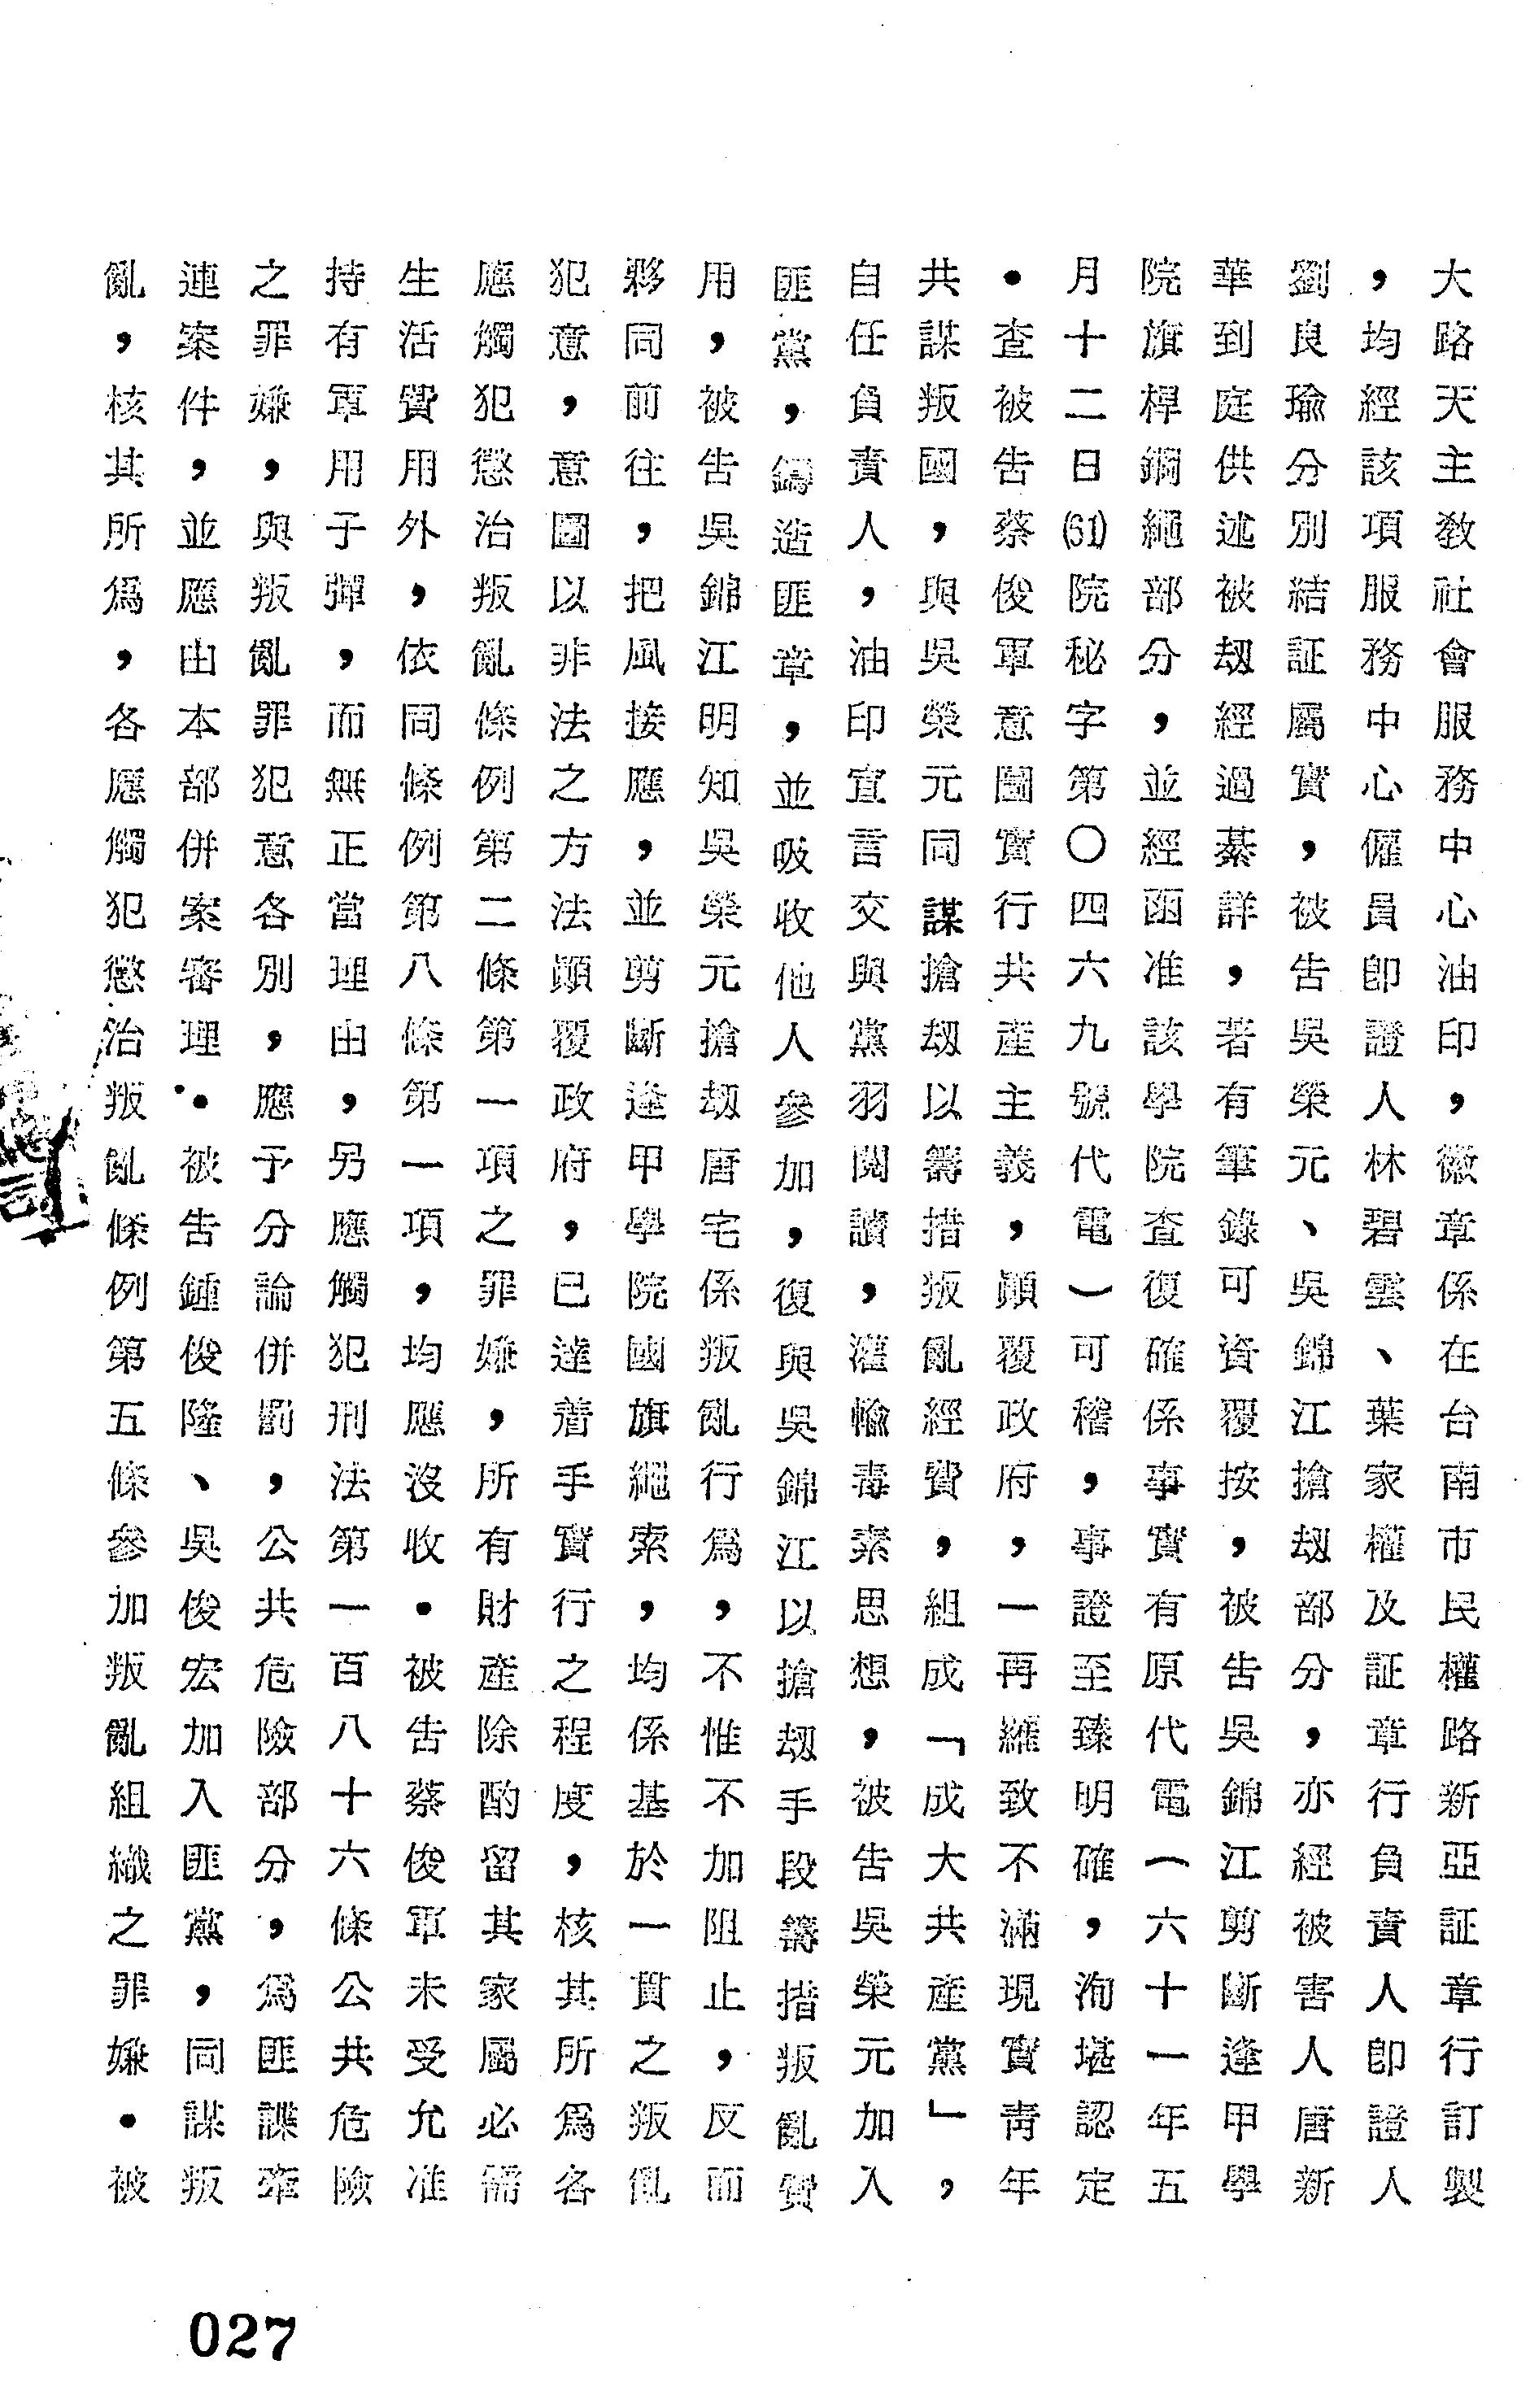 大路天主教社會服務中心油印，徽章係在台南市民權路新亞証章行訂製
，均經該項服務中心僱員卽證人林碧雲、葉家權及証章行負責人卽證人
劉良瑜分別結証屬實，被告吳榮元、吳錦江搶刼部分，亦經被害人唐新
華到庭供述被刼經過綦詳，著有筆錄可資覆按，被告吳錦江剪斷逢甲學
院旗桿鋼繩部分，並經函准該學院查復確係事實有原代電（六十一年五
月十二日(61)院秘字第〇四六九號代電）可稽，事證至臻明確，洵堪認定
•查被告蔡俊軍意圖實行共產主義，顚覆政府，一再羅致不滿現實靑年
共謀叛國，與吳榮元同謀搶刼以籌措叛亂經費，組成「成大共產黨」，
自任負責人，油印宣言交與黨羽閱讀，灌輸毒素思想，被告吳榮元加入
匪黨，鑄造匪章，並吸收他人參加，復與吳錦江以搶刼手段籌措叛亂費
用，被告吳錦江明知吳榮元搶刼唐宅係叛亂行爲，不惟不加阻止，反而
夥同前往，把風接應，並剪斷逢甲學院國旗繩索，均係基於一貫之叛亂
犯意，意圖以非法之方法顚覆政府，已達着手實行之程度，核其所爲各
應觸犯懲治叛亂條例第二條第一項之罪嫌，所有財產除酌留其家屬必需
生活費用外，依同條例第八條第一項，均應沒收•被告蔡俊軍未受允准
持有軍用于彈，而無正當理由，另應觸犯刑法第一百八十六條公共危險
之罪嫌，與叛亂罪犯意各別，應予分論併罰，公共危險部分，爲匪諜牽
連案件，並應由本部併案審理•被告鍾俊隆、吳俊宏加入匪黨，同謀叛
亂，核其所爲，各應觸犯懲治叛亂條例第五條參加叛亂組織之罪嫌•被
027